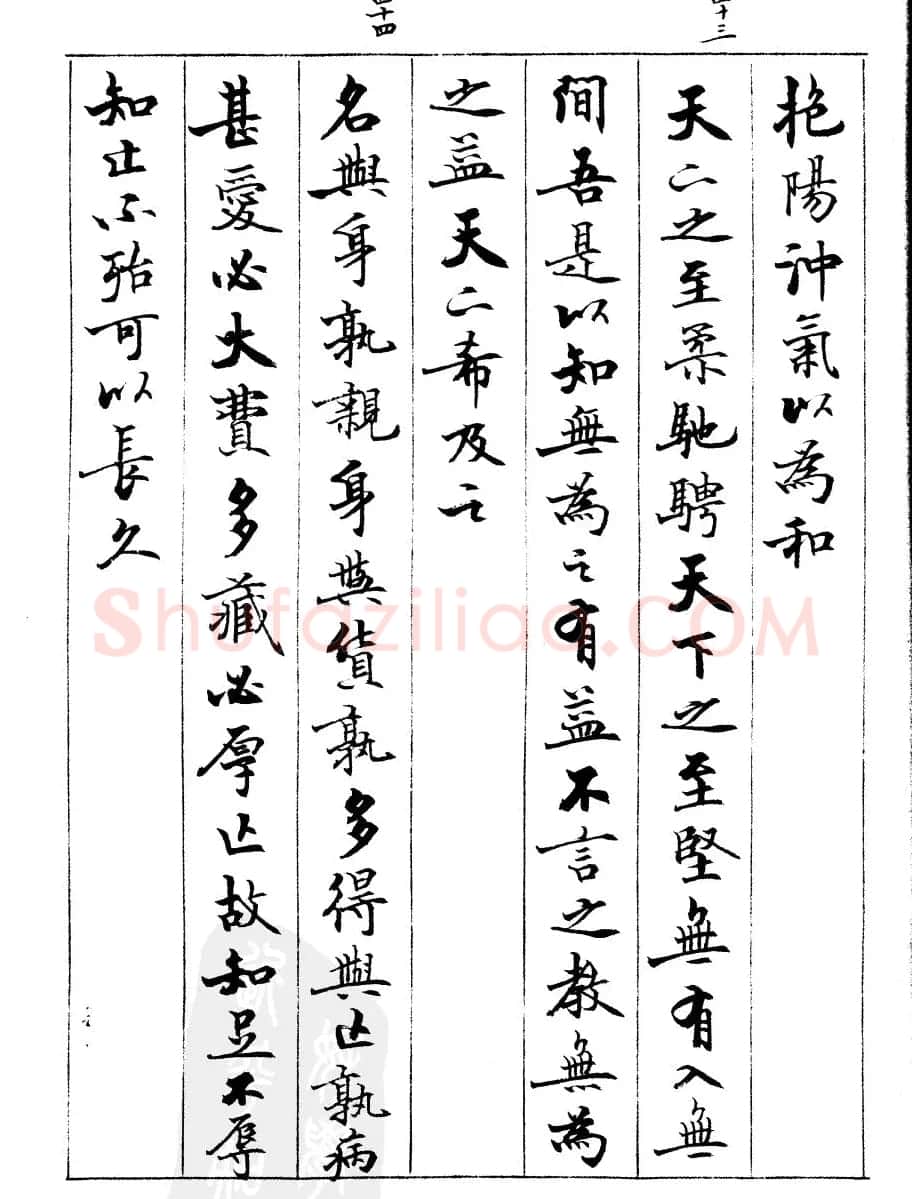 十三
抱陽沖氣以為和
天下之至柔馳騁天下之至堅無有入無
間吾是以知無為之有益不言之教無為
之益天下希及之
十四
名與身孰親身與貨孰多得與亡孰病
甚愛必大費多藏必厚亡故知足不辱
知止不殆可以長久
Shufaziliao.COM